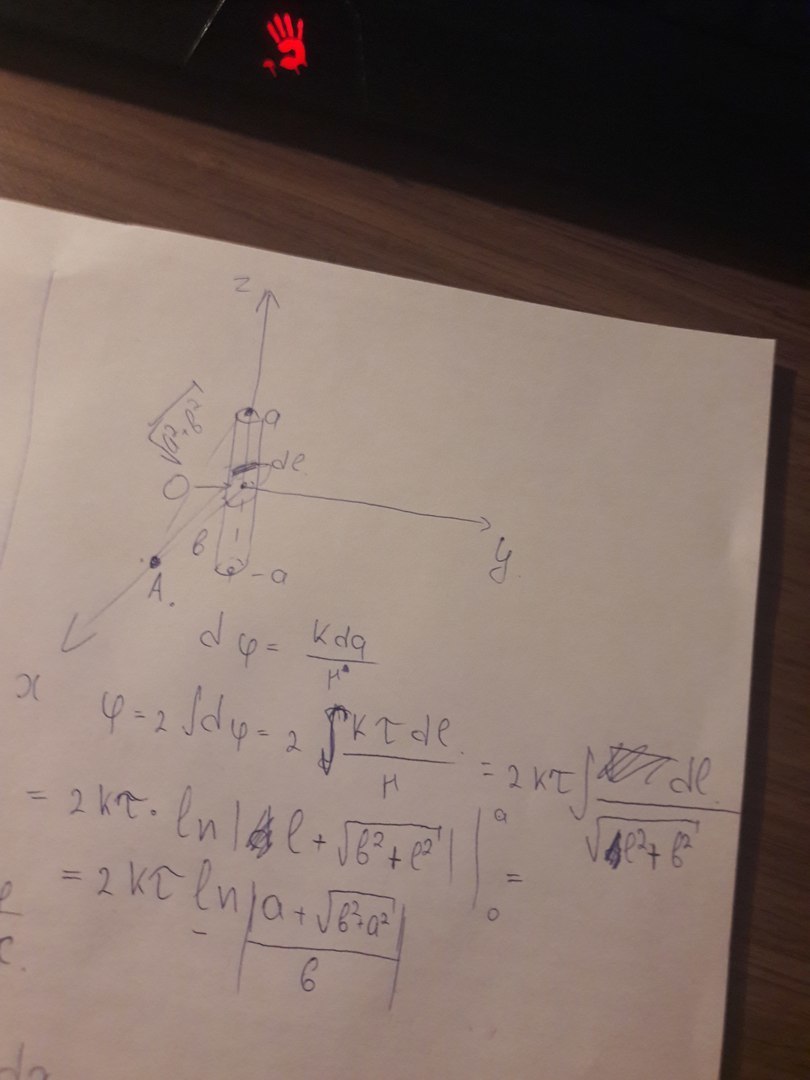 z
a
dl
O
в
y
A.
-a
x
dφ = kdq / r
φ = 2 ∫dφ = 2 ∫ kτdl / r = 2kτ ∫ dl / √(l²+в²)
= 2kτ · ln|l + √(в²+l²)| |₀ᵃ =
= 2kτ ln |(a + √(в²+a²)) / в|